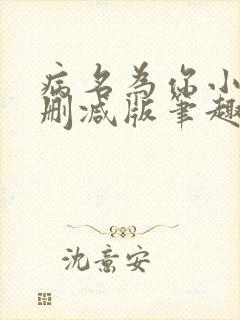 病名为你小
删减版笔趣
沈意安